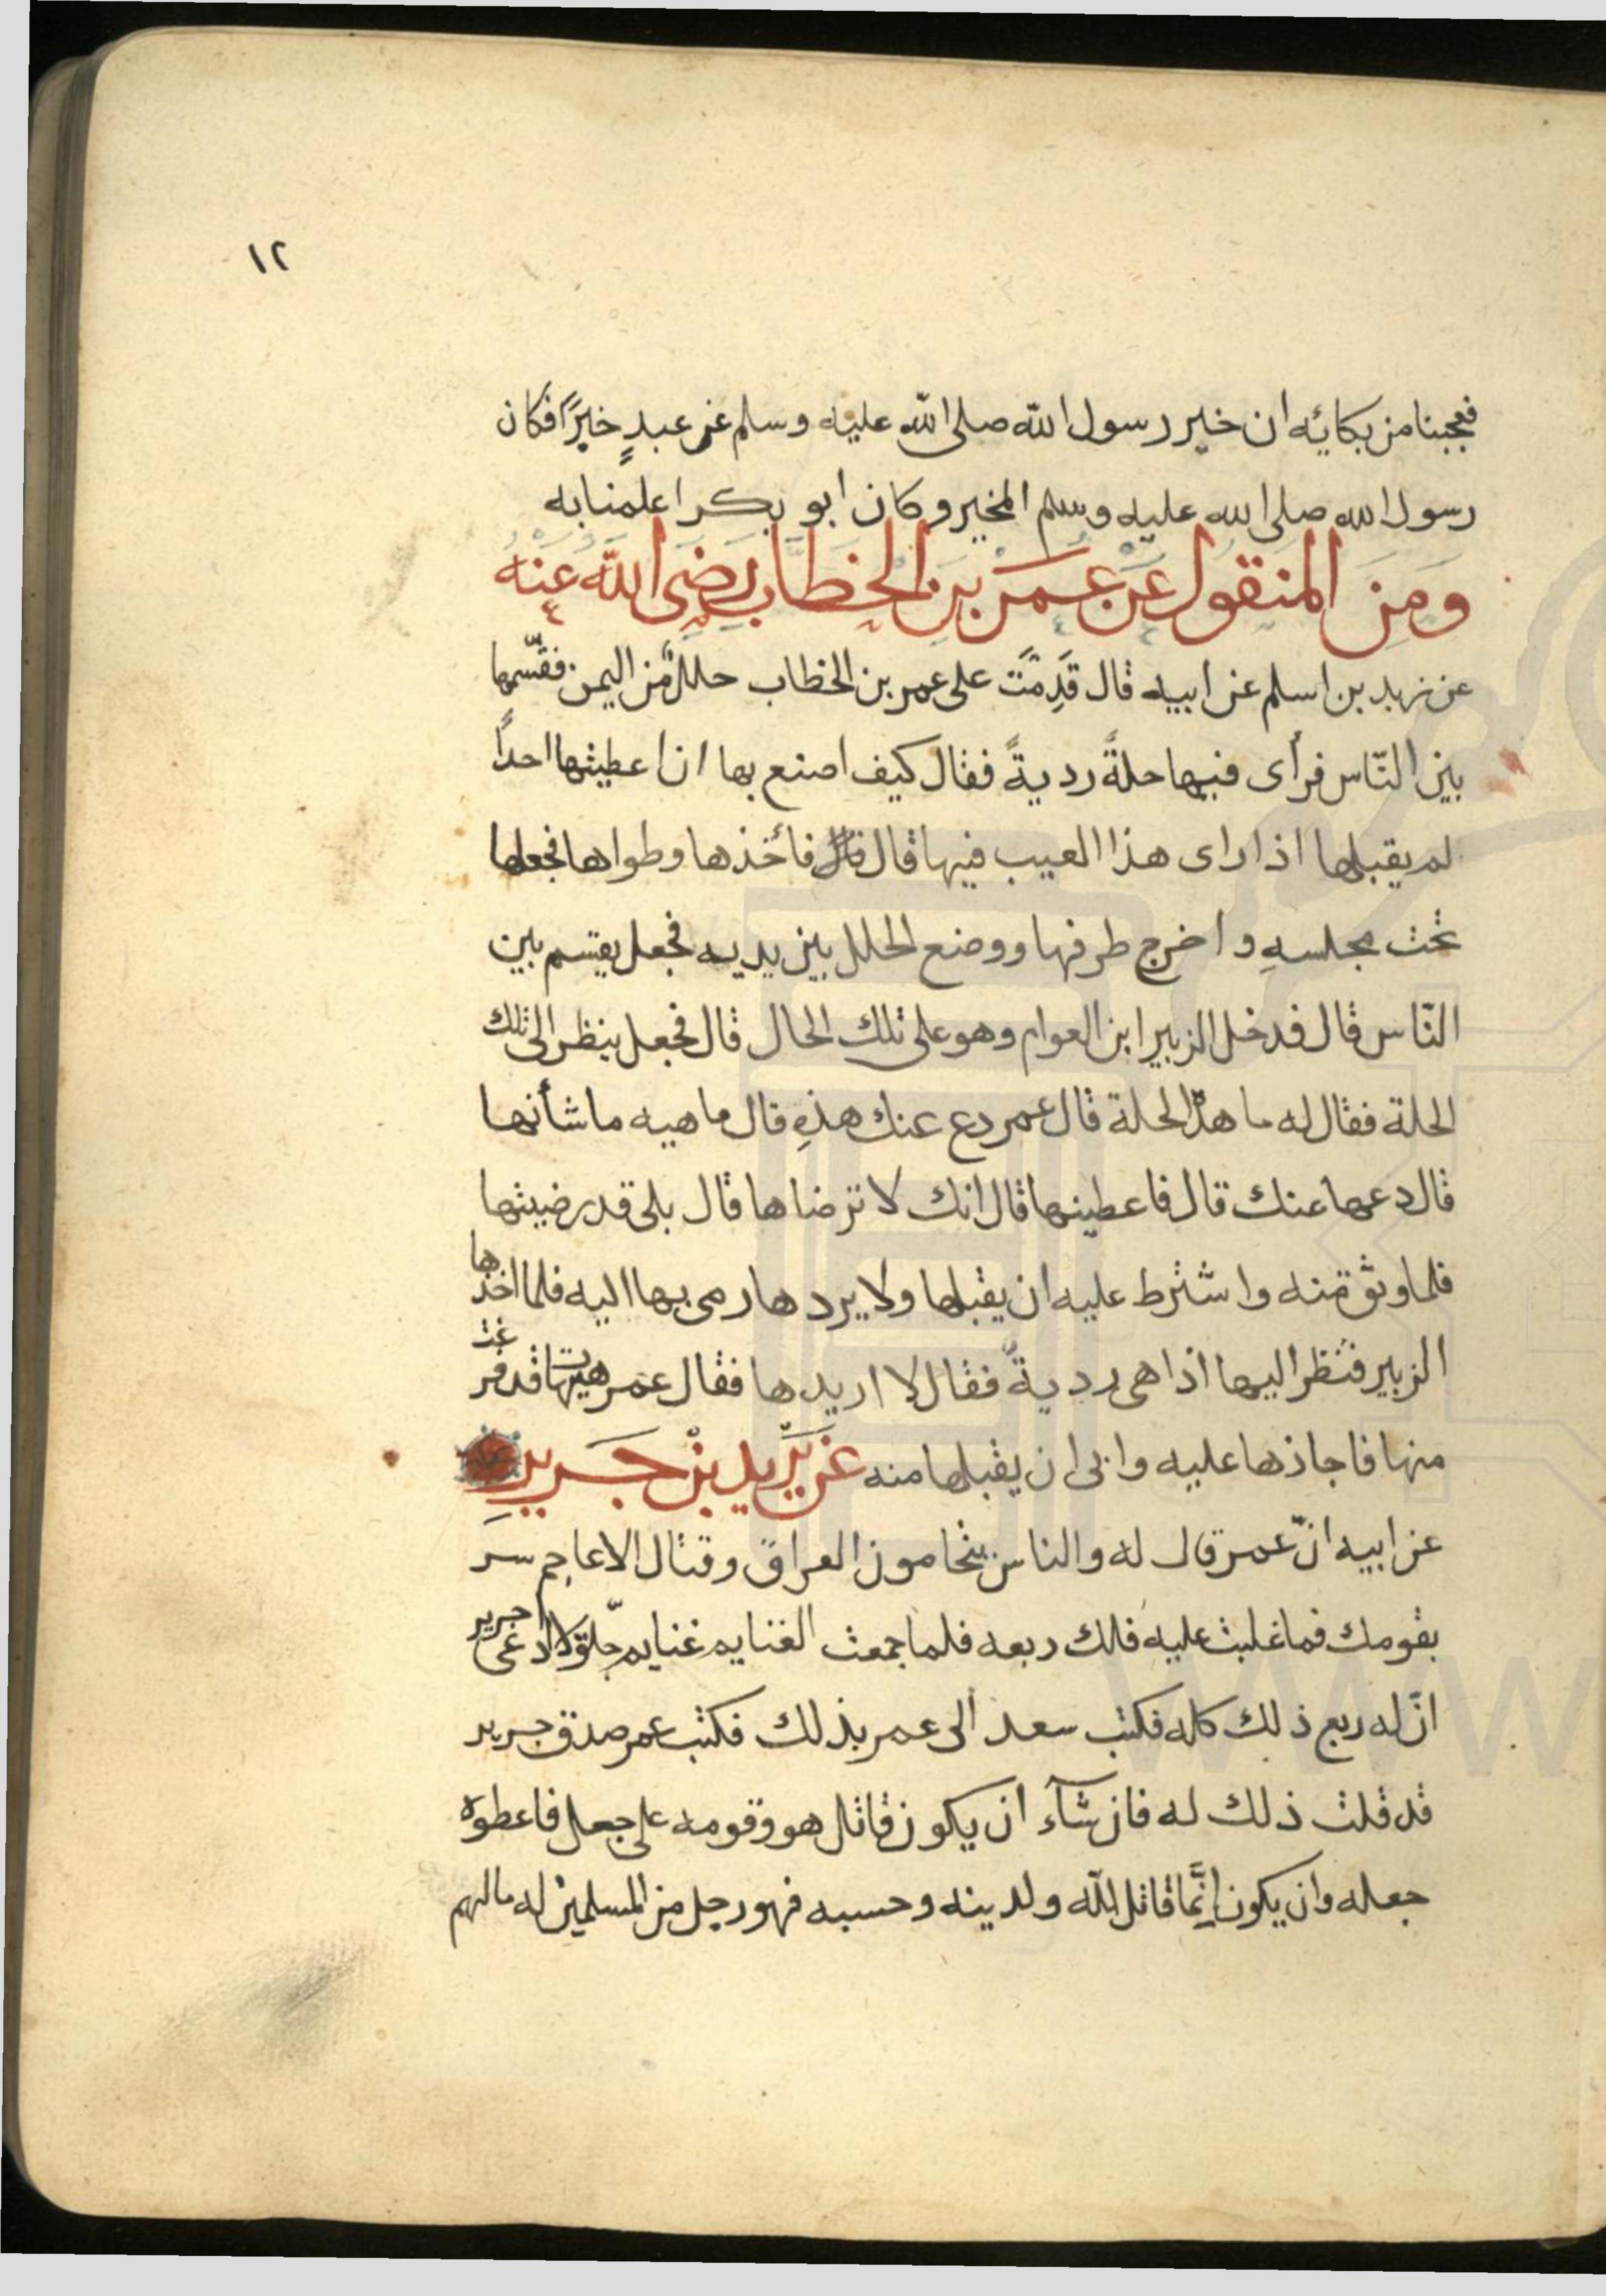 ١٢
فعجبنا من بكائه ان خير رسول الله صلى الله عليه وسلم عن عبدٍ خيرًا فكان
رسول الله صلى الله عليه وسلم المخير وكان ابو بكر اعلمنا به
ومن المنقول عن عمر بن الخطاب رضى الله عنه
عن زيد بن اسلم عن ابيه قال قَدِمَت على عمر بن الخطاب حللٌ من اليمن فقسّمها
بين النّاس فرأى فيها حلةً رديةً فقال كيف اصنع بها ان اعطيتها احدًا
لم يقبلها اذا راى هذا العيب فيها قال فأخذها وطواها فجعلها
تحت مجلسهِ واخرج طرفها ووضع الحلل بين يديه فجعل يقسم بين
النّاس قال فدخل الزبير ابن العوام وهو على تلك الحال قال فجعل ينظر الى تلك
الحلة فقال له ما هذه الحلة قال عمر دع عنك هذهِ قال ما هيه ما شأنها
قال دعها عنك قال فاعطينها قال انك لا ترضاها قال بلى قد رضيتها
فلما وثق منه واشترط عليه ان يقبلها ولا يردها رمى بها اليه فلما اخذها
الزبير فنظر اليها اذا هى رديةٌ فقال لا اريدها فقال عمر هيهات قد فرغت
منها فاجازها عليه وابى ان يقبلها منه عن يزيد بن جرير
عن ابيه انّ عمر قال له والناس يتحامون العراق وقتال الاعاجم سر
بقومك فما غلبت عليه فلك ربعه فلما جمعت الغنايم غنايم جلّولا ادعى جرير
انّ له ربع ذلك كله فكتب سعد الى عمر بذلك فكتب عمر صدق جرير
قد قلت ذلك له فان شآء ان يكون قاتل هو وقومه على جعل فاعطوه
جعله وان يكون اِنَّما قاتل لله ولدينه وحسبه فهو رجل من المسلمين له مالهم